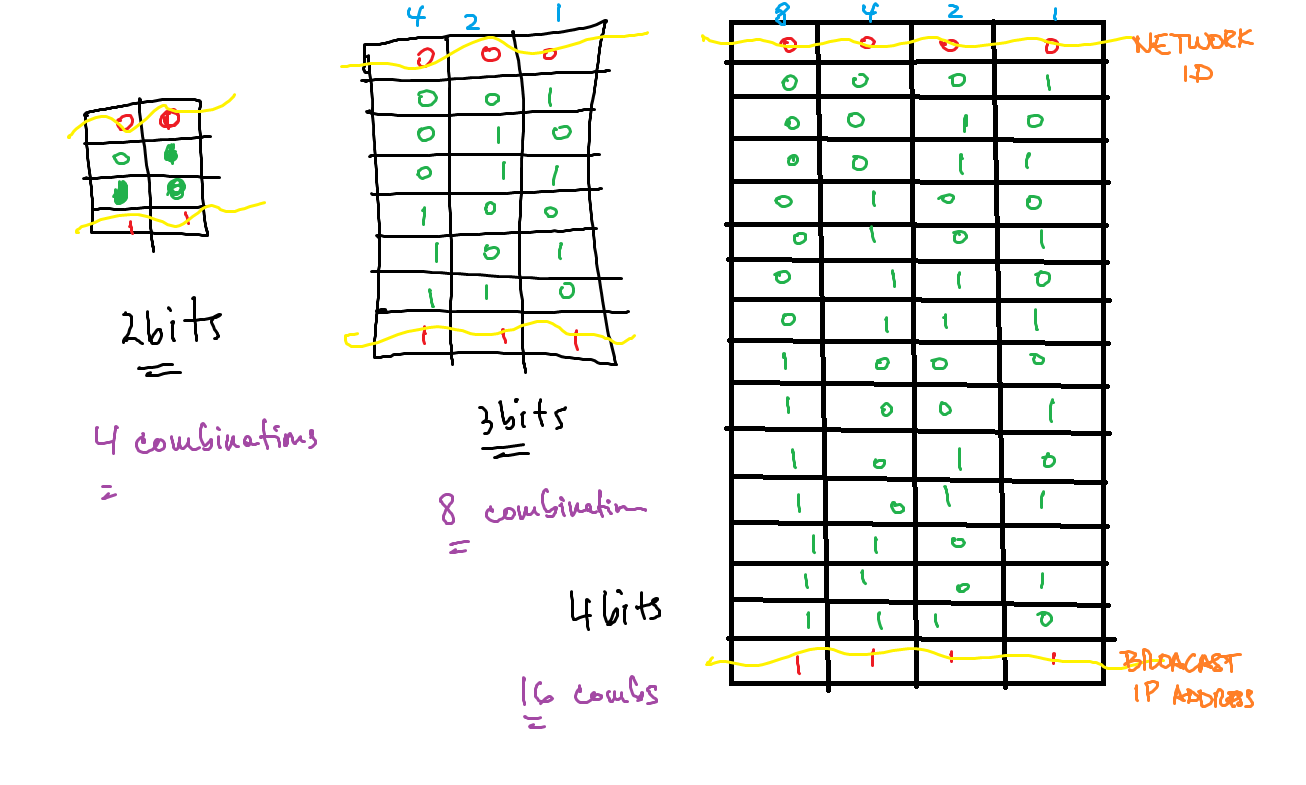 0 0
0
0
1 1
2bits
4 combinations
4 2 1
0 0 0
0 0 1
0 1 0
0 1 1
1 0 0
1 0 1
1 1 0
1 1 1
3bits
8 combination
8 4 2 1
0 0 0 0
0 0 0 1
0 0 1 0
0 0 1 1
0 1 0 0
0 1 0 1
0 1 1 0
0 1 1 1
1 0 0 0
1 0 0 1
1 0 1 0
1 0 1 1
1 1 0
1 1 0 1
1 1 1 0
1 1 1 1
NETWORK
I.D
BROACAST
IP ADDRESS
4bits
16 combs